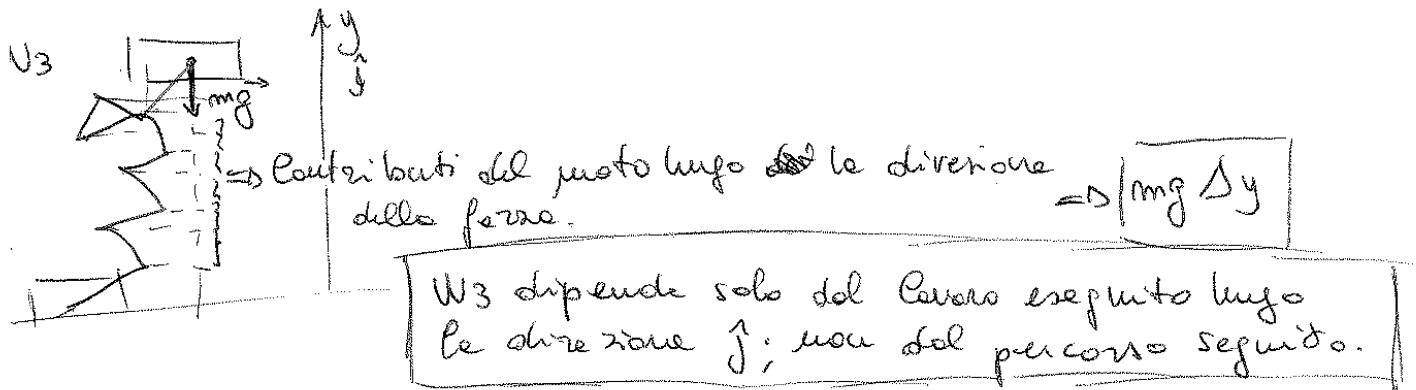 W3
y
ĵ
mg
=> Contributi del moto lungo la direzione
della forza.
=> mg Δy
W3 dipende solo dal lavoro eseguito lungo
la direzione ĵ; non dal percorso seguito.